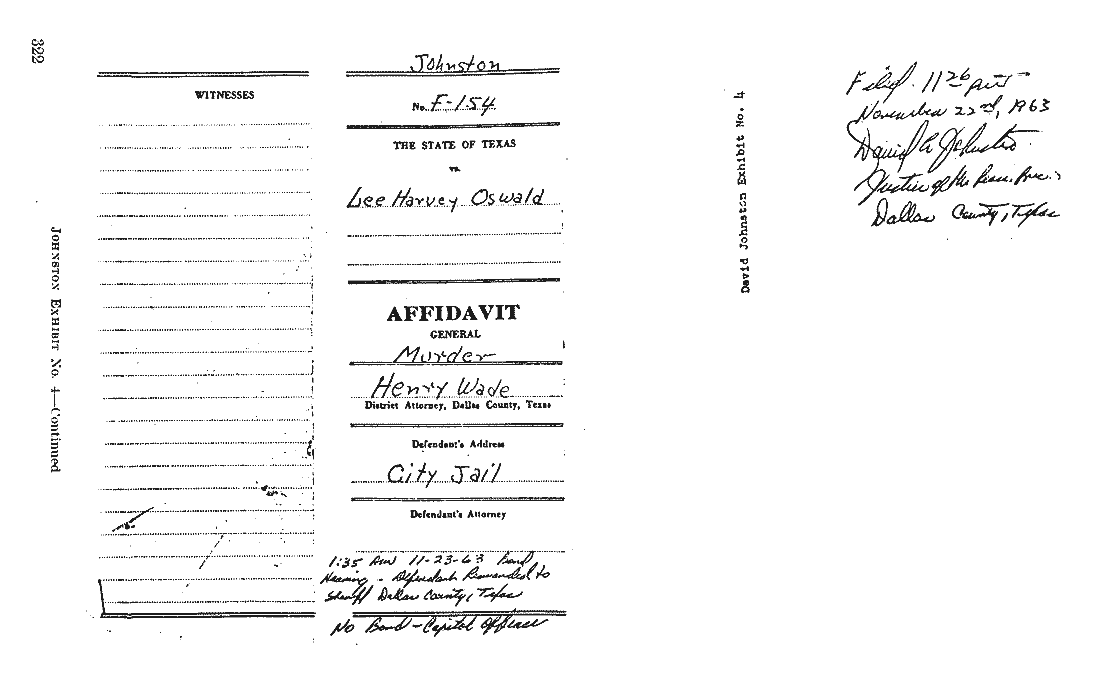 322
JOHNSTON EXHIBIT No. 4—Continued
WITNESSES
Johnston
No. F-154
THE STATE OF TEXAS
vs.
Lee Harvey Oswald
AFFIDAVIT
GENERAL
Murder
Henry Wade
District Attorney, Dallas County, Texas
Defendant's Address
City Jail
Defendant's Attorney
1:35 AM 11-23-63 Bond
Hearing - Defendant Remanded to
Sheriff Dallas County, Texas
No Bond - Capitol Offense
David Johnston Exhibit No. 4
Filed 11 26 pm
November 22nd, 1963
David L Johnston
Justice of the Peace, Prec.
Dallas County, Texas